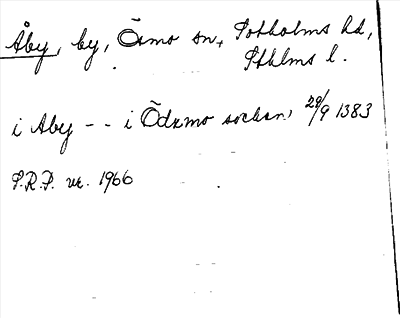 Åby, by, Ösmo sn, Sotholms hd,
Sthlms l.
i Aby -- i Ödzmo sockan, 29/9 1383
S.R.P. nr. 1966